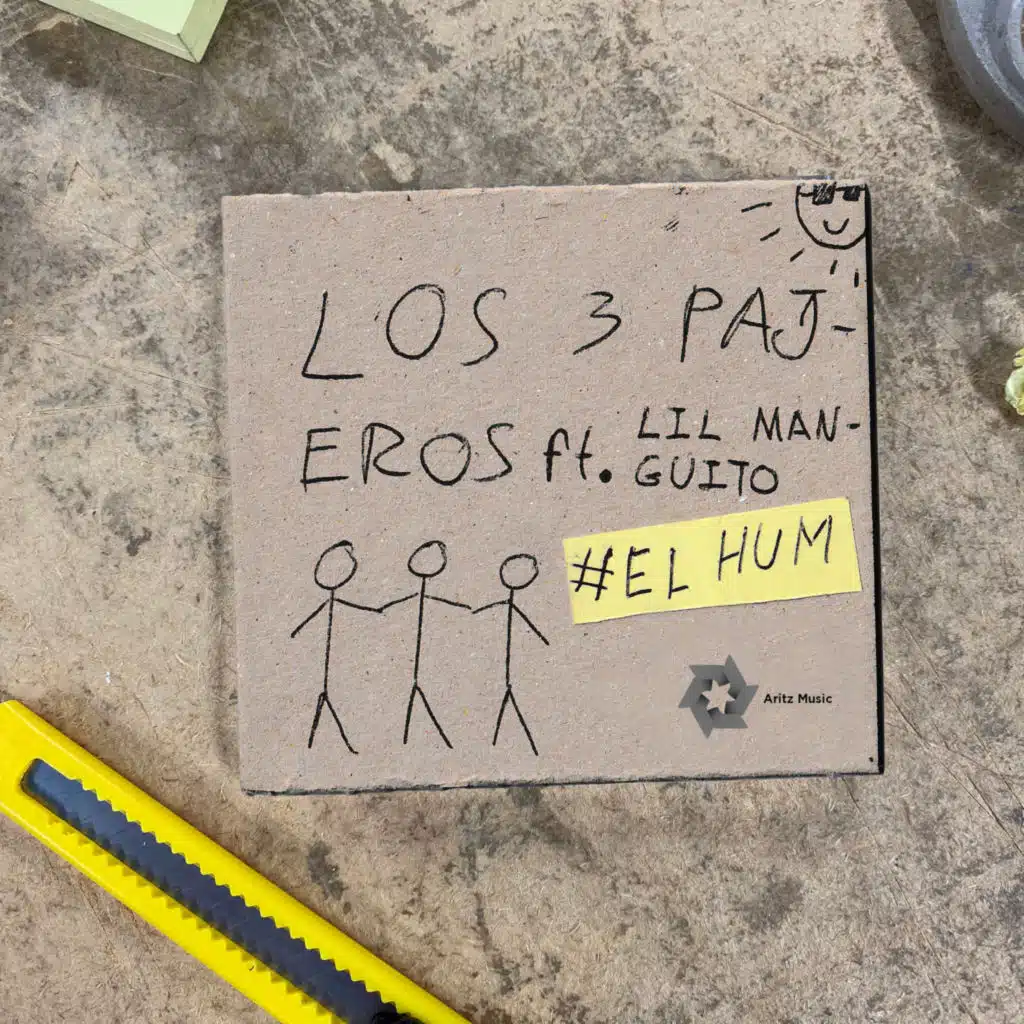 LOS 3 PAJ-
EROS ft. LIL MAN-
GUITO
#EL HUM
Aritz Music